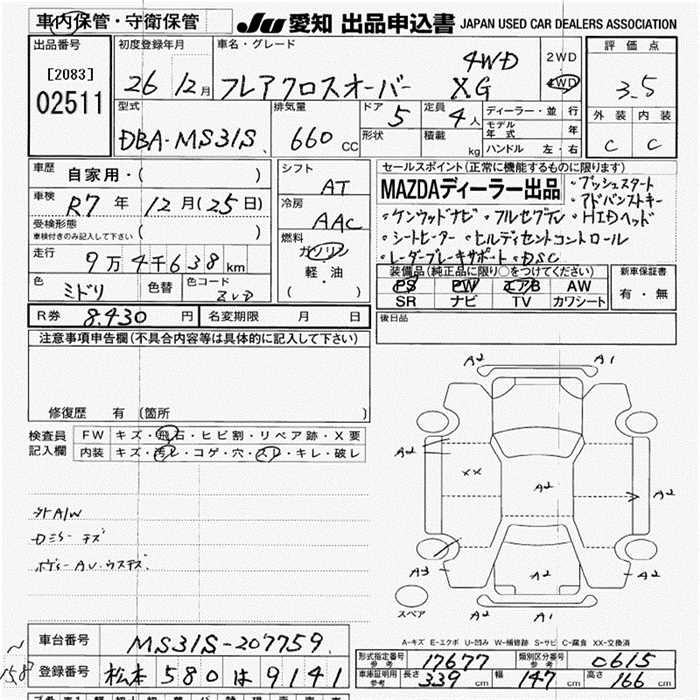 車内保管・守衛保管 JU 愛知 出品申込書 JAPAN USED CAR DEALERS ASSOCIATION
出品番号 初度登録年月 車名・グレード 評価点
[2083] 02511
26年12月 フレアクロスオーバー 4WD XG
2WD 4WD
3.5
型式 排気量 ドア 5 定員 4人 ディーラー・並行
外装 内装
DBA-MS31S 660 CC 形状 積載 kg
モデル年式 年
ハンドル 左・右
C C
車歴 自家用・( )
シフト AT
セールスポイント(正常に機能するものに限ります)
MAZDAディーラー出品
・プッシュスタート
・アドバンストキー
車検 R7年12月(25日)
冷房 AAC
・ケンウッドナビ ・フルセグTV ・HIDヘッド
受検形態 車検付きのみ記入して下さい ( )
燃料 ガソリン 軽・油 ( )
・シートヒーター ・ヒルディセントコントロール
走行 9万4千638km
・レーダーブレーキサポート ・DSC
装備品(純正品に限り○をつけてください) 新車保証書
色 ミドリ 色替 色コード
PS PW エアB AW 有・無
SR ナビ TV カワシート
R券 8,430円 名変期限 月 日
後日品
注意事項申告欄(不具合内容等は具体的に記入して下さい)
修復歴 有 (箇所 )
検査員記入欄
FW キズ・飛石・ヒビ割・リペア跡・X要
内装 キズ・汚レ・コゲ・穴・スレ・キレ・破レ
A2 A1
A2 XX A2 A2
外A/W
ボディーAU・ウスキズ
A3 A2 A2
スペア A2 A1
A-キズ E-エクボ U-凹み W-補修跡 S-サビ C-腐食 XX-交換済
車台番号 MS31S-207759
登録番号 松本 580 は 9141
形式指定番号 参考 17677 類別区分番号 参考 0615
車庫証明用 参考 長さ 339 cm 幅 147 cm 高さ 166 cm